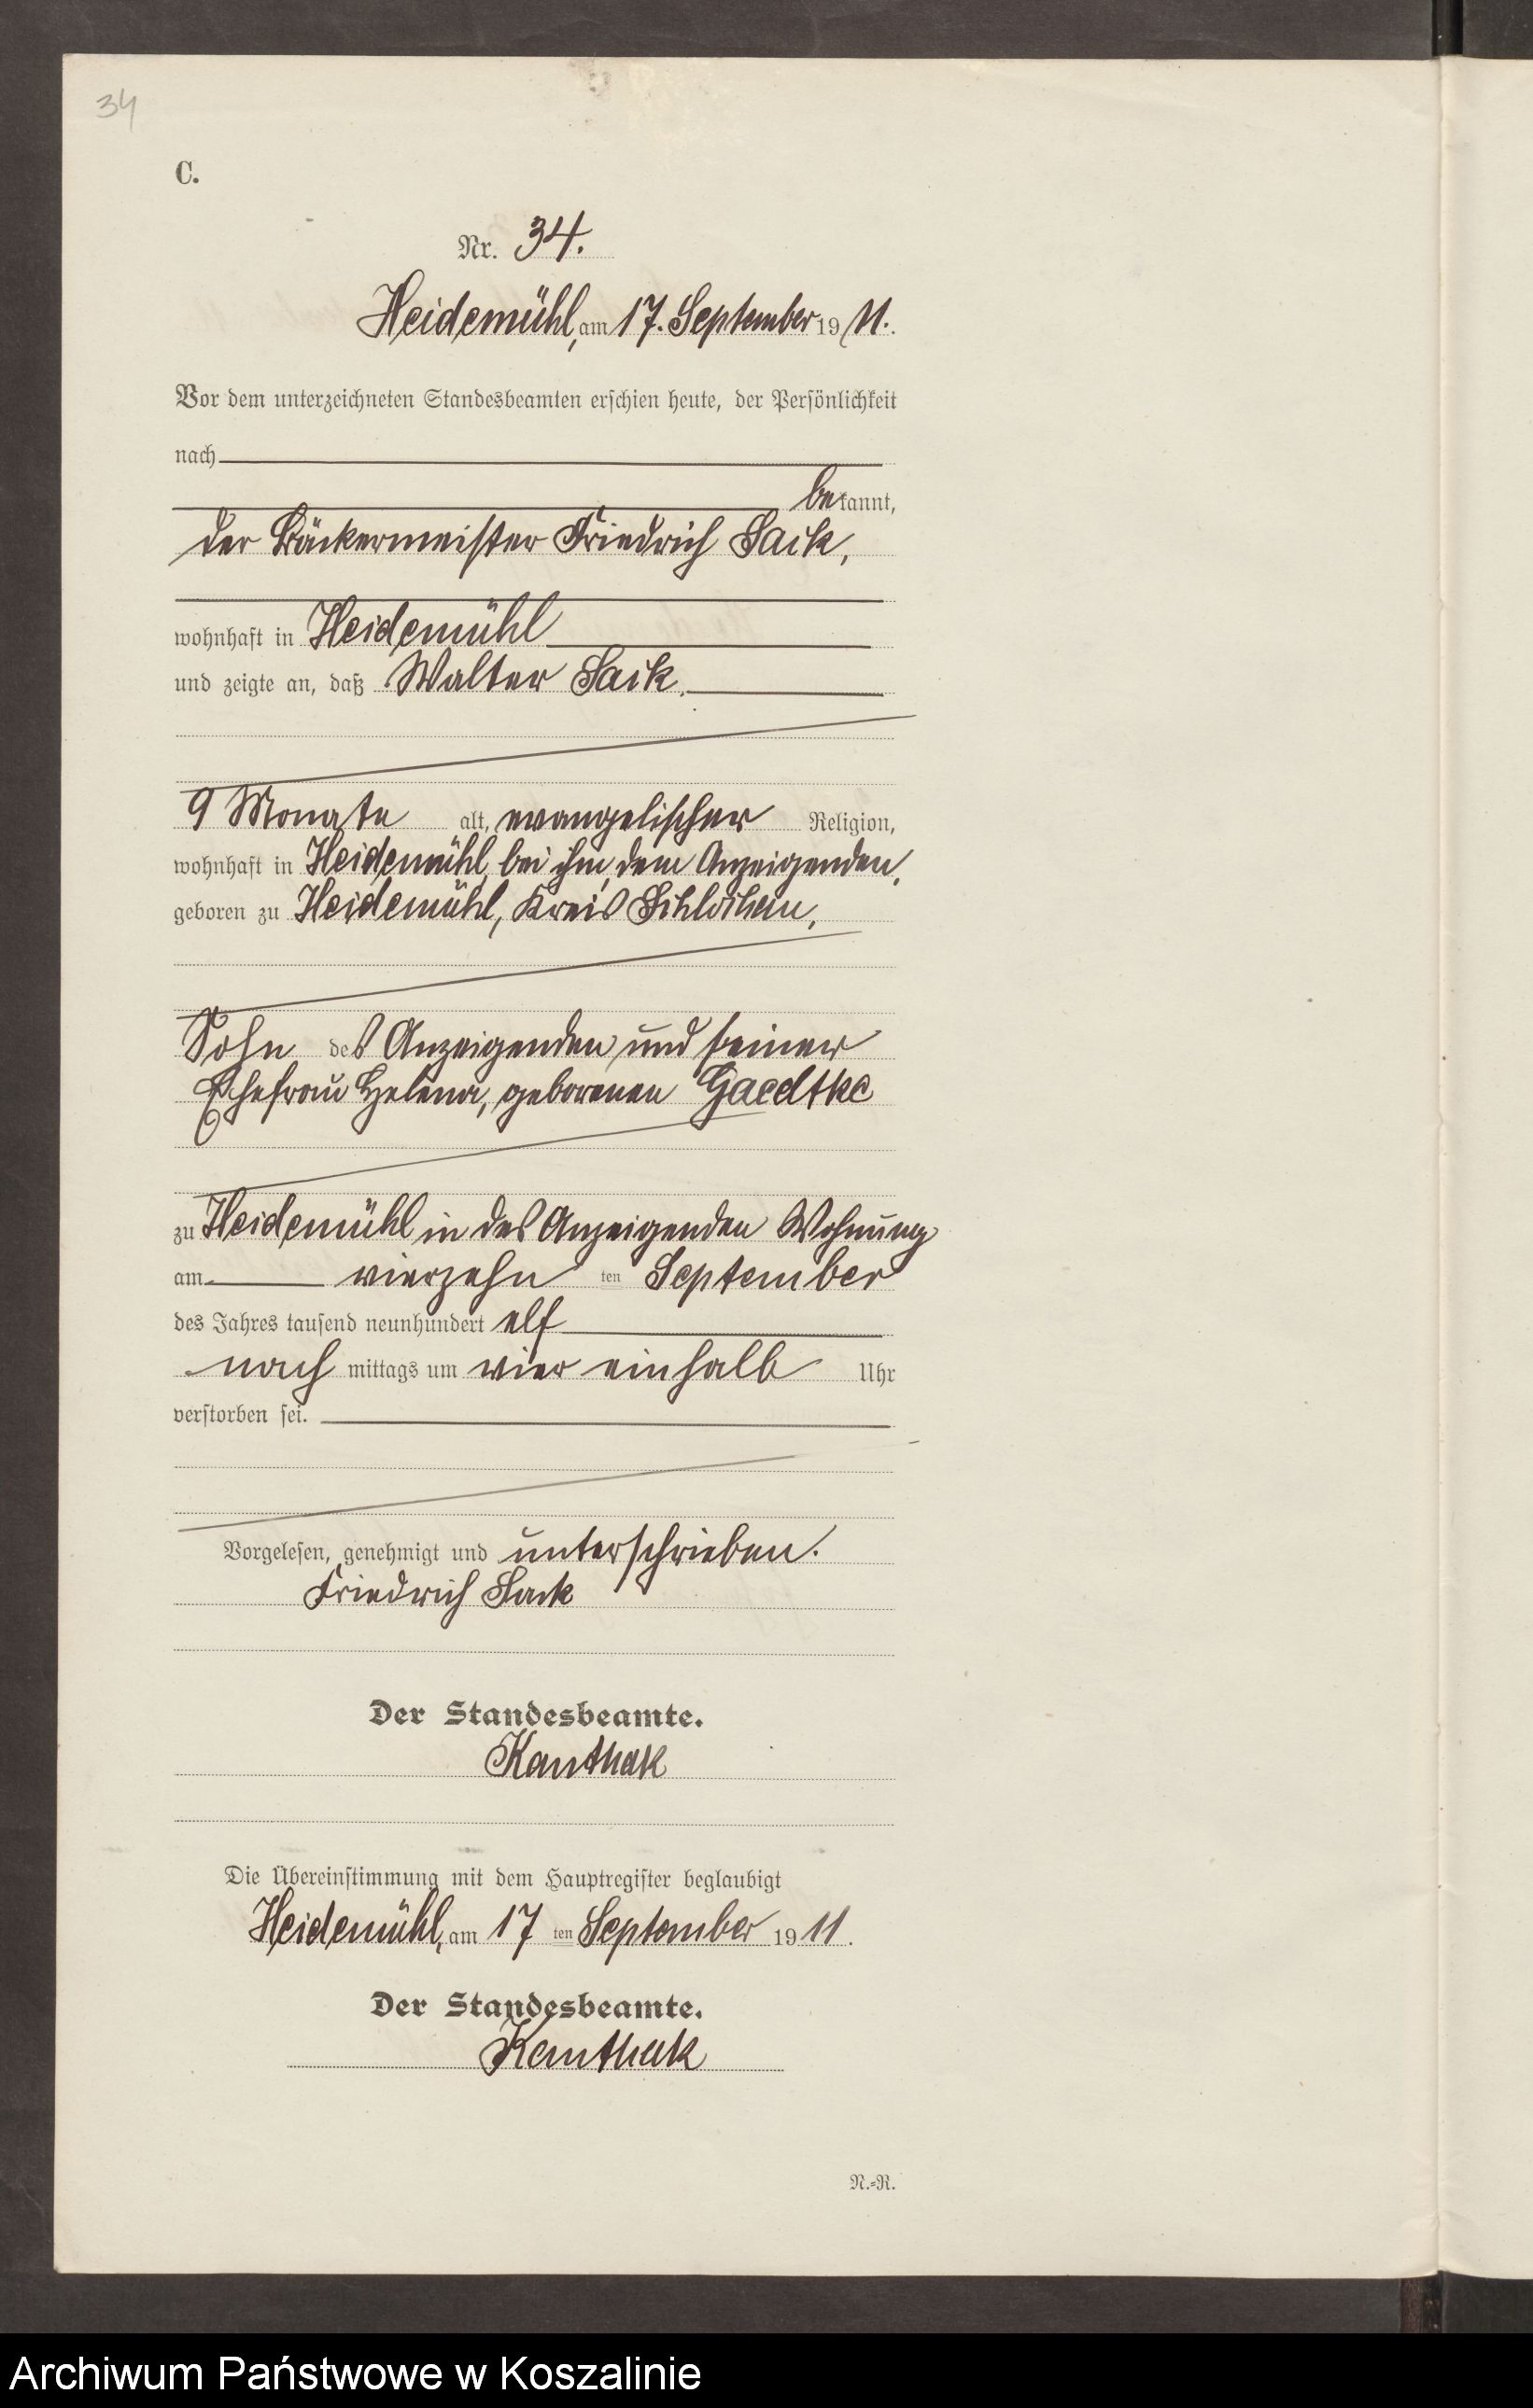 34
C.
Nr. 34.
Heidemühl, am 17. September 1911.
Vor dem unterzeichneten Standesbeamten erschien heute, der Persönlichkeit
nach
bekannt,
der Bäckermeister Friedrich Sack,
wohnhaft in Heidemühl
und zeigte an, daß Walter Sack,
9 Monate alt, evangelischer Religion,
wohnhaft in Heidemühl, bei ihm, dem Anzeigenden,
geboren zu Heidemühl, Kreis Schlochau,
Sohn des Anzeigenden und seiner
Ehefrau Helena, geborenen Gaedtke
zu Heidemühl in des Anzeigenden Wohnung
am vierzehn ten September
des Jahres tausend neunhundert elf
nach mittags um vier einhalb Uhr
verstorben sei.
Vorgelesen, genehmigt und unterschrieben.
Friedrich Sack
Der Standesbeamte.
Kanthak
Die Übereinstimmung mit dem Hauptregister beglaubigt
Heidemühl, am 17 ten September 1911.
Der Standesbeamte.
Kanthak
N.=R.
Archiwum Państwowe w Koszalinie